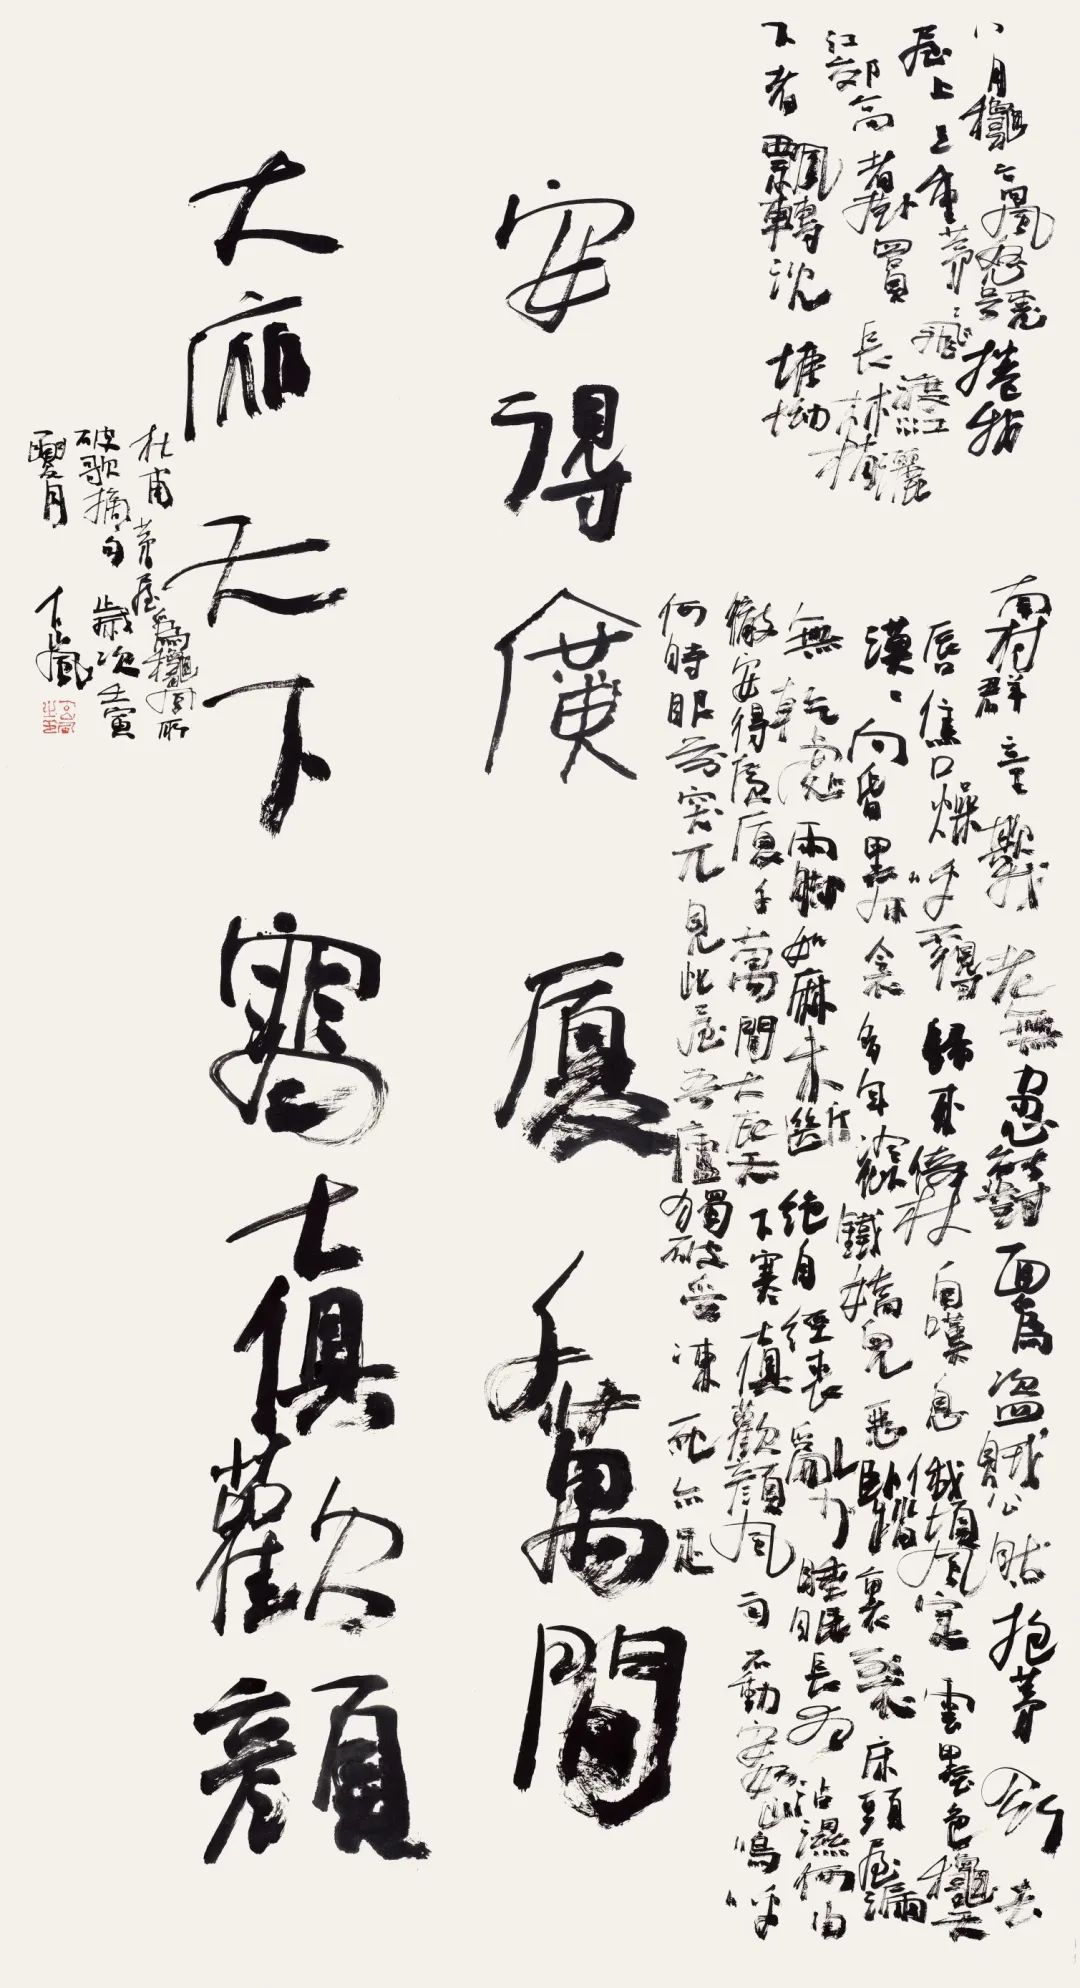 八月穐高風怒號捲我
屋上三重茅〻飛渡江灑
江郊高者挂罥長林梢
下者飄轉沉塘坳
南村群童欺我老無力忍能對面為盜賊公然抱茅入竹去
唇焦口燥呼不得歸來倚杖自嘆息俄頃風定雲墨色穐天
漠〻向昏黑布衾多年冷似鐵嬌兒惡臥踏裏裂床頭屋漏
無乾處雨腳如麻未斷絕自經喪亂少睡眠長夜沾濕何由
徹安得廣廈千萬間大庇天下寒士俱歡顏風雨不動安如山嗚呼
何時眼前突兀見此屋吾廬獨破受凍死亦足
安得廣廈千萬間
大庇天下寒士俱歡顏
杜甫茅屋為穐風所
破歌摘句歲次壬寅
夏月